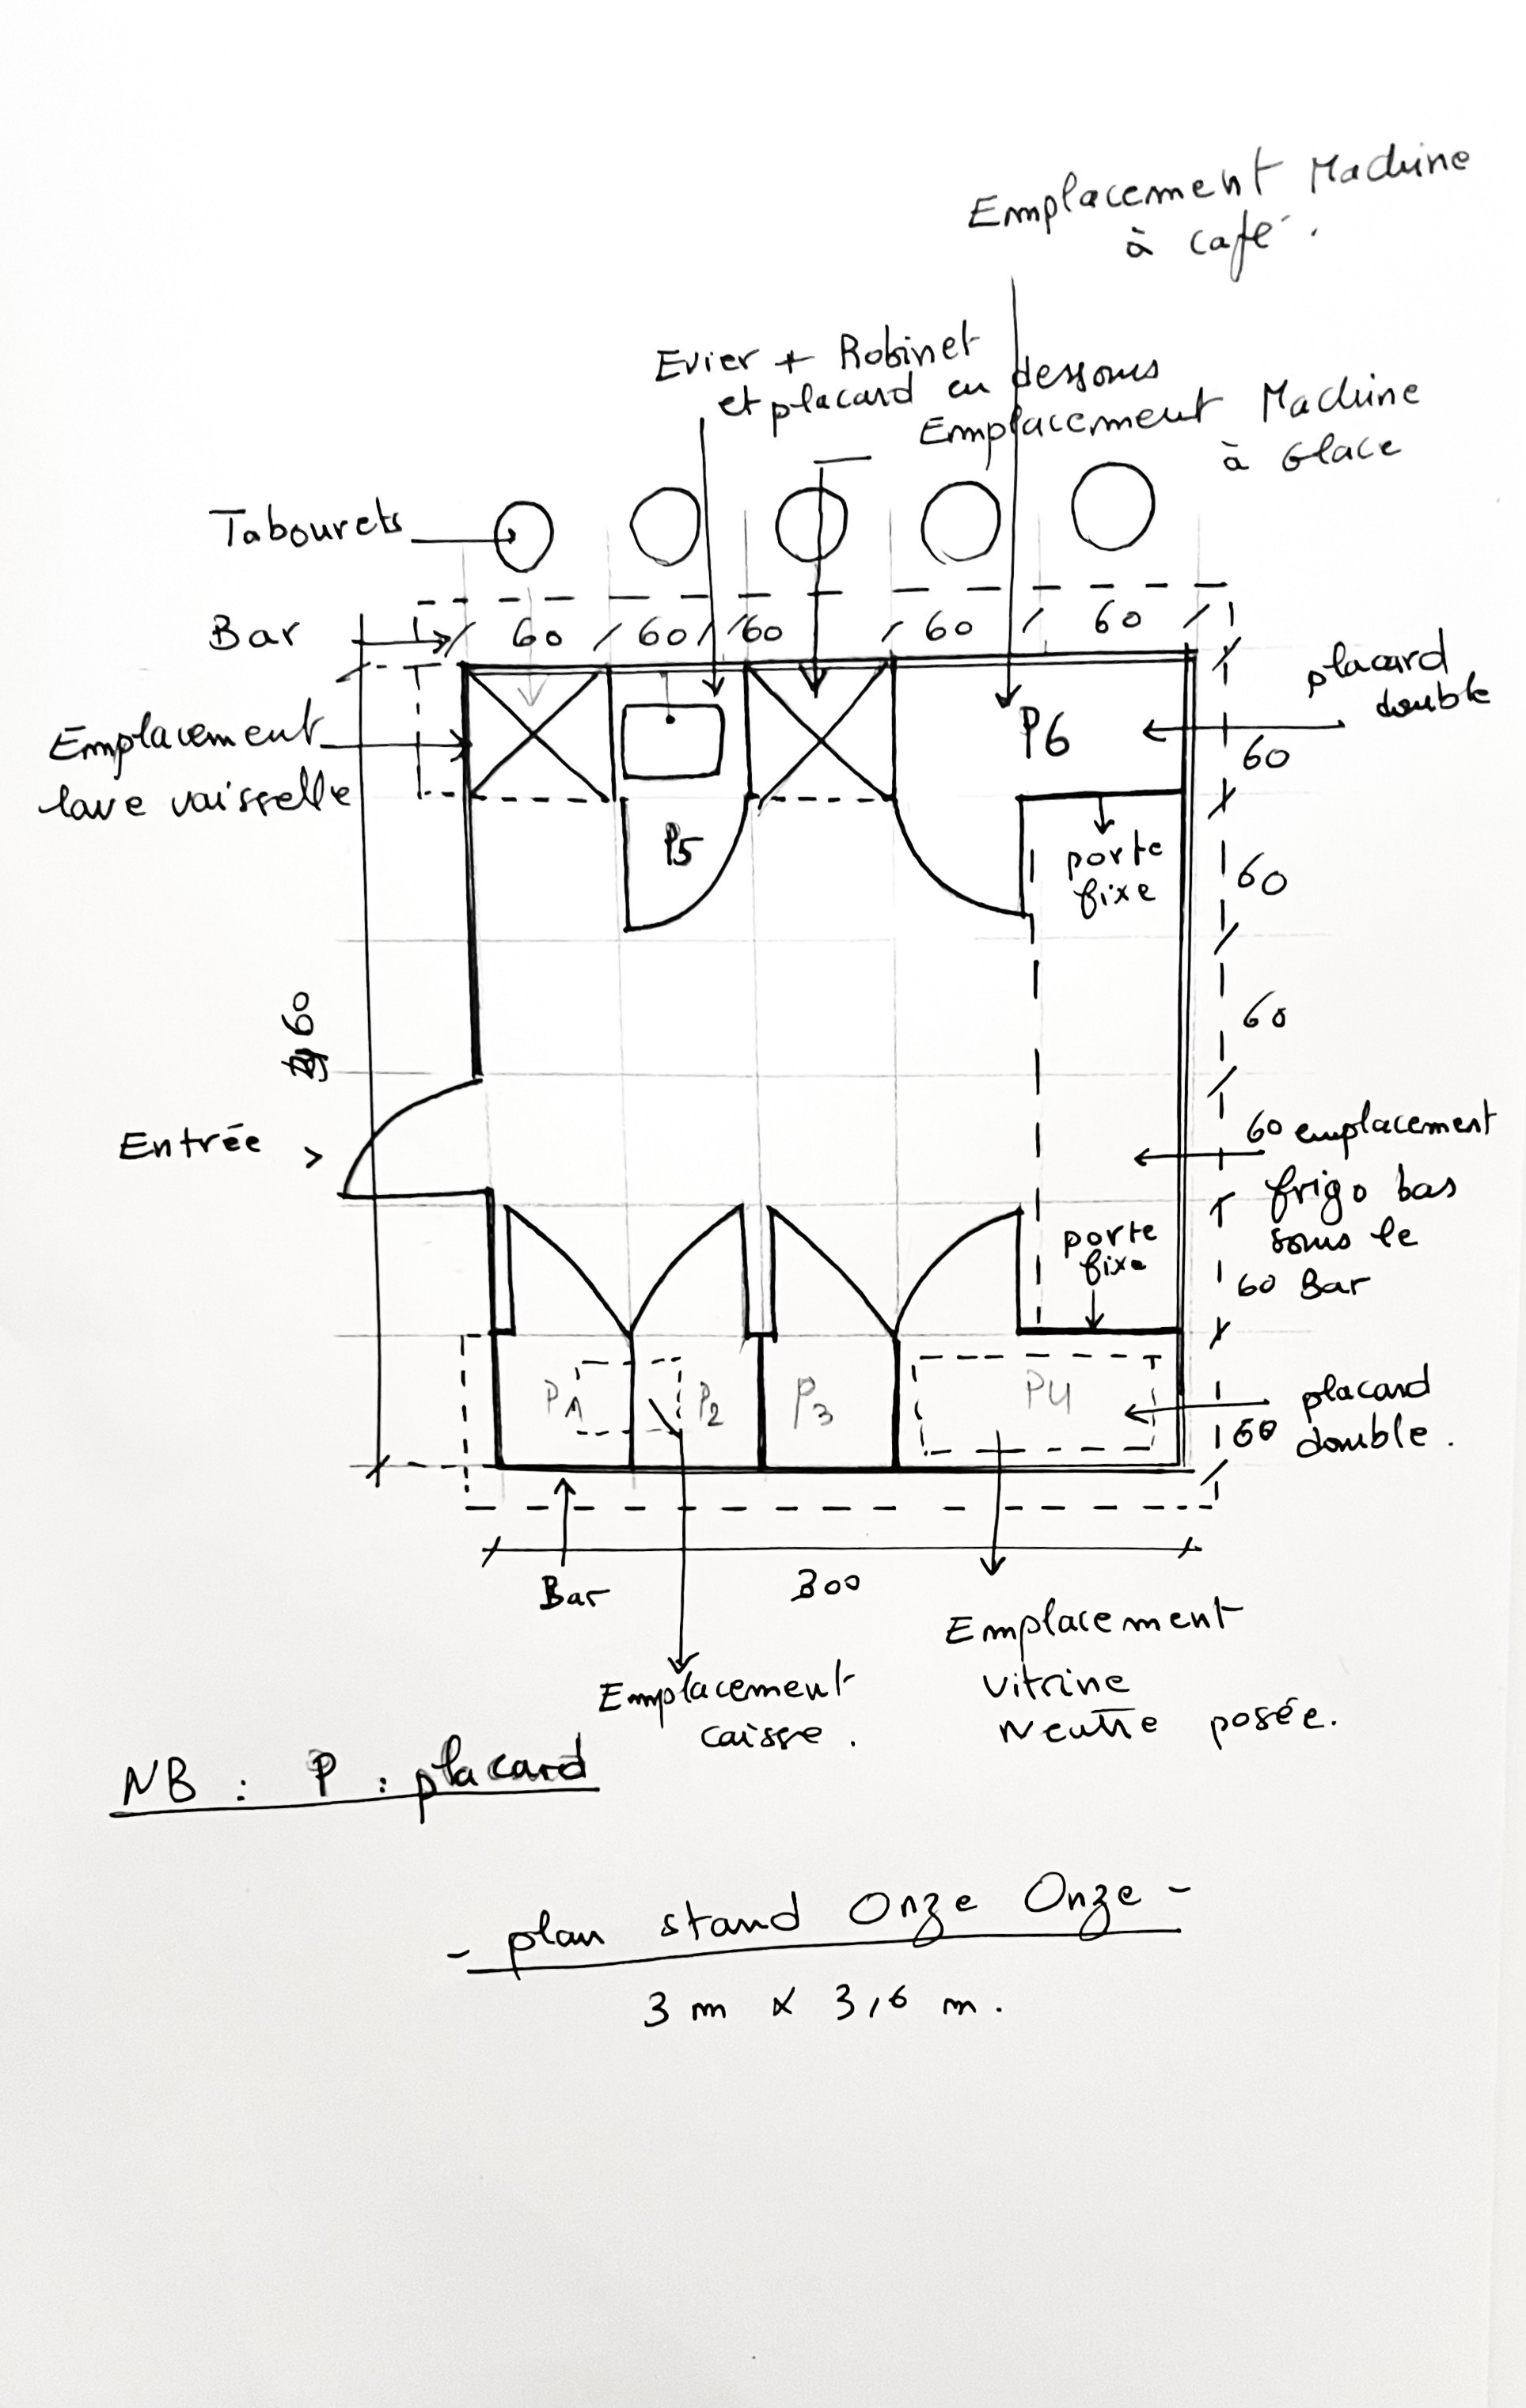 Emplacement Machine
à café.
Evier + Robinet
et placard en dessous
Emplacement Machine
à Glace
Tabourets
Bar
60 60 60 60 60
placard
double
Emplacement
lave vaisselle
P6
60
P5
porte
fixe
60
60
60
Entrée >
60 emplacement
frigo bas
sous le
60 Bar
porte
fixe
P1
P2
P3
P4
placard
60 double.
Bar
300
Emplacement
caisse.
Emplacement
vitrine
Neutre posée.
NB : P : placard
- plan stand Onze Onze -
3 m x 3,6 m.